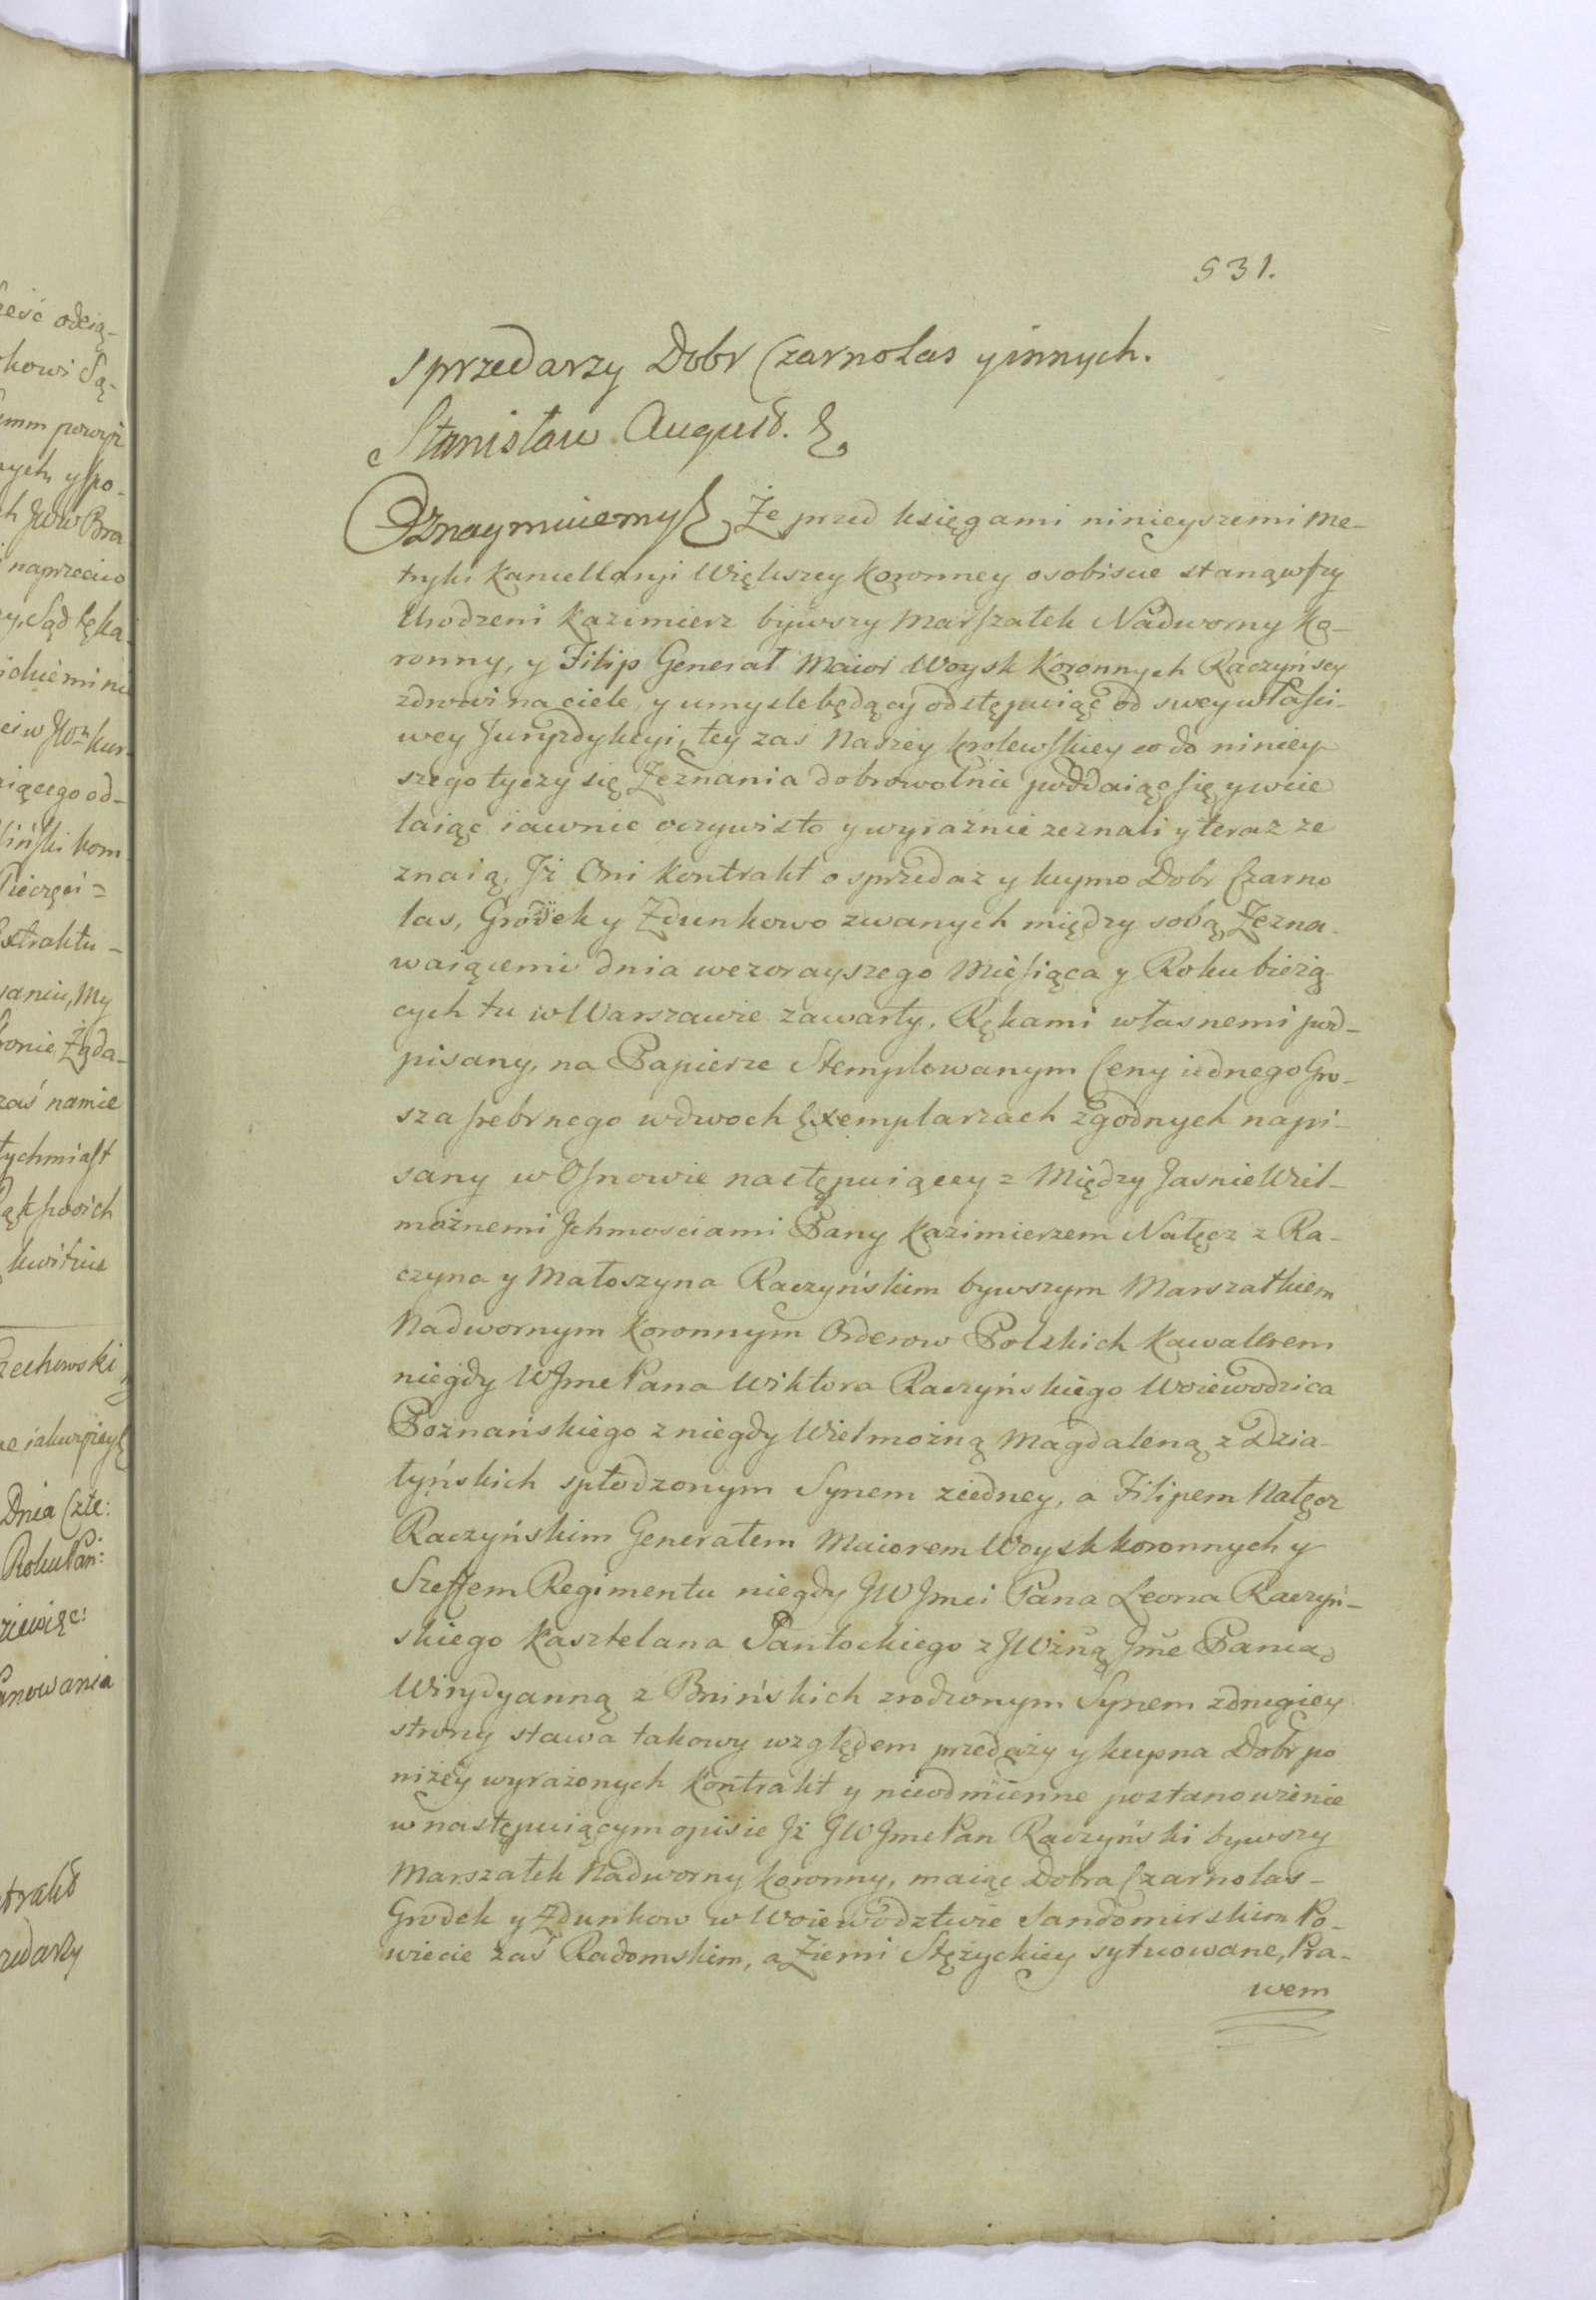 531.
sprzedarzy Dobr Czarnolas y innych.
Stanisław August. &
Oznaymuiemy & Że przed księgami ninieyszemi Me-
tryki Kancellaryi Większey Koronney osobiscie stanąwszy
Urodzeni Kazimierz bywszy Marszałek Nadworny Ko-
ronny, y Filip Generał Maior Woysk Koronnych Raczyńscy
zdrowi na ciele, y umysle będący odstępuiąc od swey właści-
wey Juryzdykcyi, tey zas Naszey Krolewskiey co do niniey-
szego tyczy się Zeznania dobrowolnie poddaiąc się y wcie
laiąc iawnie oczywisto y wyraznie zeznali y teraz ze
znaią, Jż Oni Kontrakt o sprzedaz y kupno Dobr Czarno
las, Grodek y Zdunkowo zwanych między sobą Zezna-
waiącemi dnia wczorayszego Miesiąca y Roku bieżą-
cych tu w Warszawie zawarty, Rękami własnemi pod-
pisany, na Papierze Stemplowanym Ceny iednego Gro-
sza srebrnego w dwoch Exemplarzach zgodnych napi-
sany w Osnowie następuiącey = Między Jasnie Wiel-
możnemi Jchmosciami Pany Kazimierzem Nałęcz z Ra-
czyna y Małoszyna Raczyńskim bywszym Marszałkiem
Nadwornym Koronnym Orderow Polskich Kawalerem
niegdy WJmc Pana Wiktora Raczyńskiego Woiewodzica
Poznańskiego z niegdy Wielmożną Magdaleną z Dzia-
łyńskich spłodzonym Synem z iedney, a Filipem Nałęcz
Raczyńskim Generałem Maiorem Woysk koronnych y
Szeffem Regimentu niegdy JW Jmci Pana Leona Raczyń-
skiego Kasztelana Santockiego z JWżną Jmc Panią
Wirydyanną z Bnińskich zrodzonym Synem z drugiey
strony stawa takowy względem przedaży y kupna Dobr po
niżey wyrażonych Kontrakt y nieodmienne postanowienie
w następuiącym opisie Jż JW Jmc Pan Raczyński bywszy
Marszałek Nadworny koronny, maiąc Dobra Czarnolas-
Grodek y Zdunkow w Woiewodztwie Sandomirskim Po-
wiecie zaś Radomskim, a Ziemi Stężyckiey sytuowane, Pra-
wem